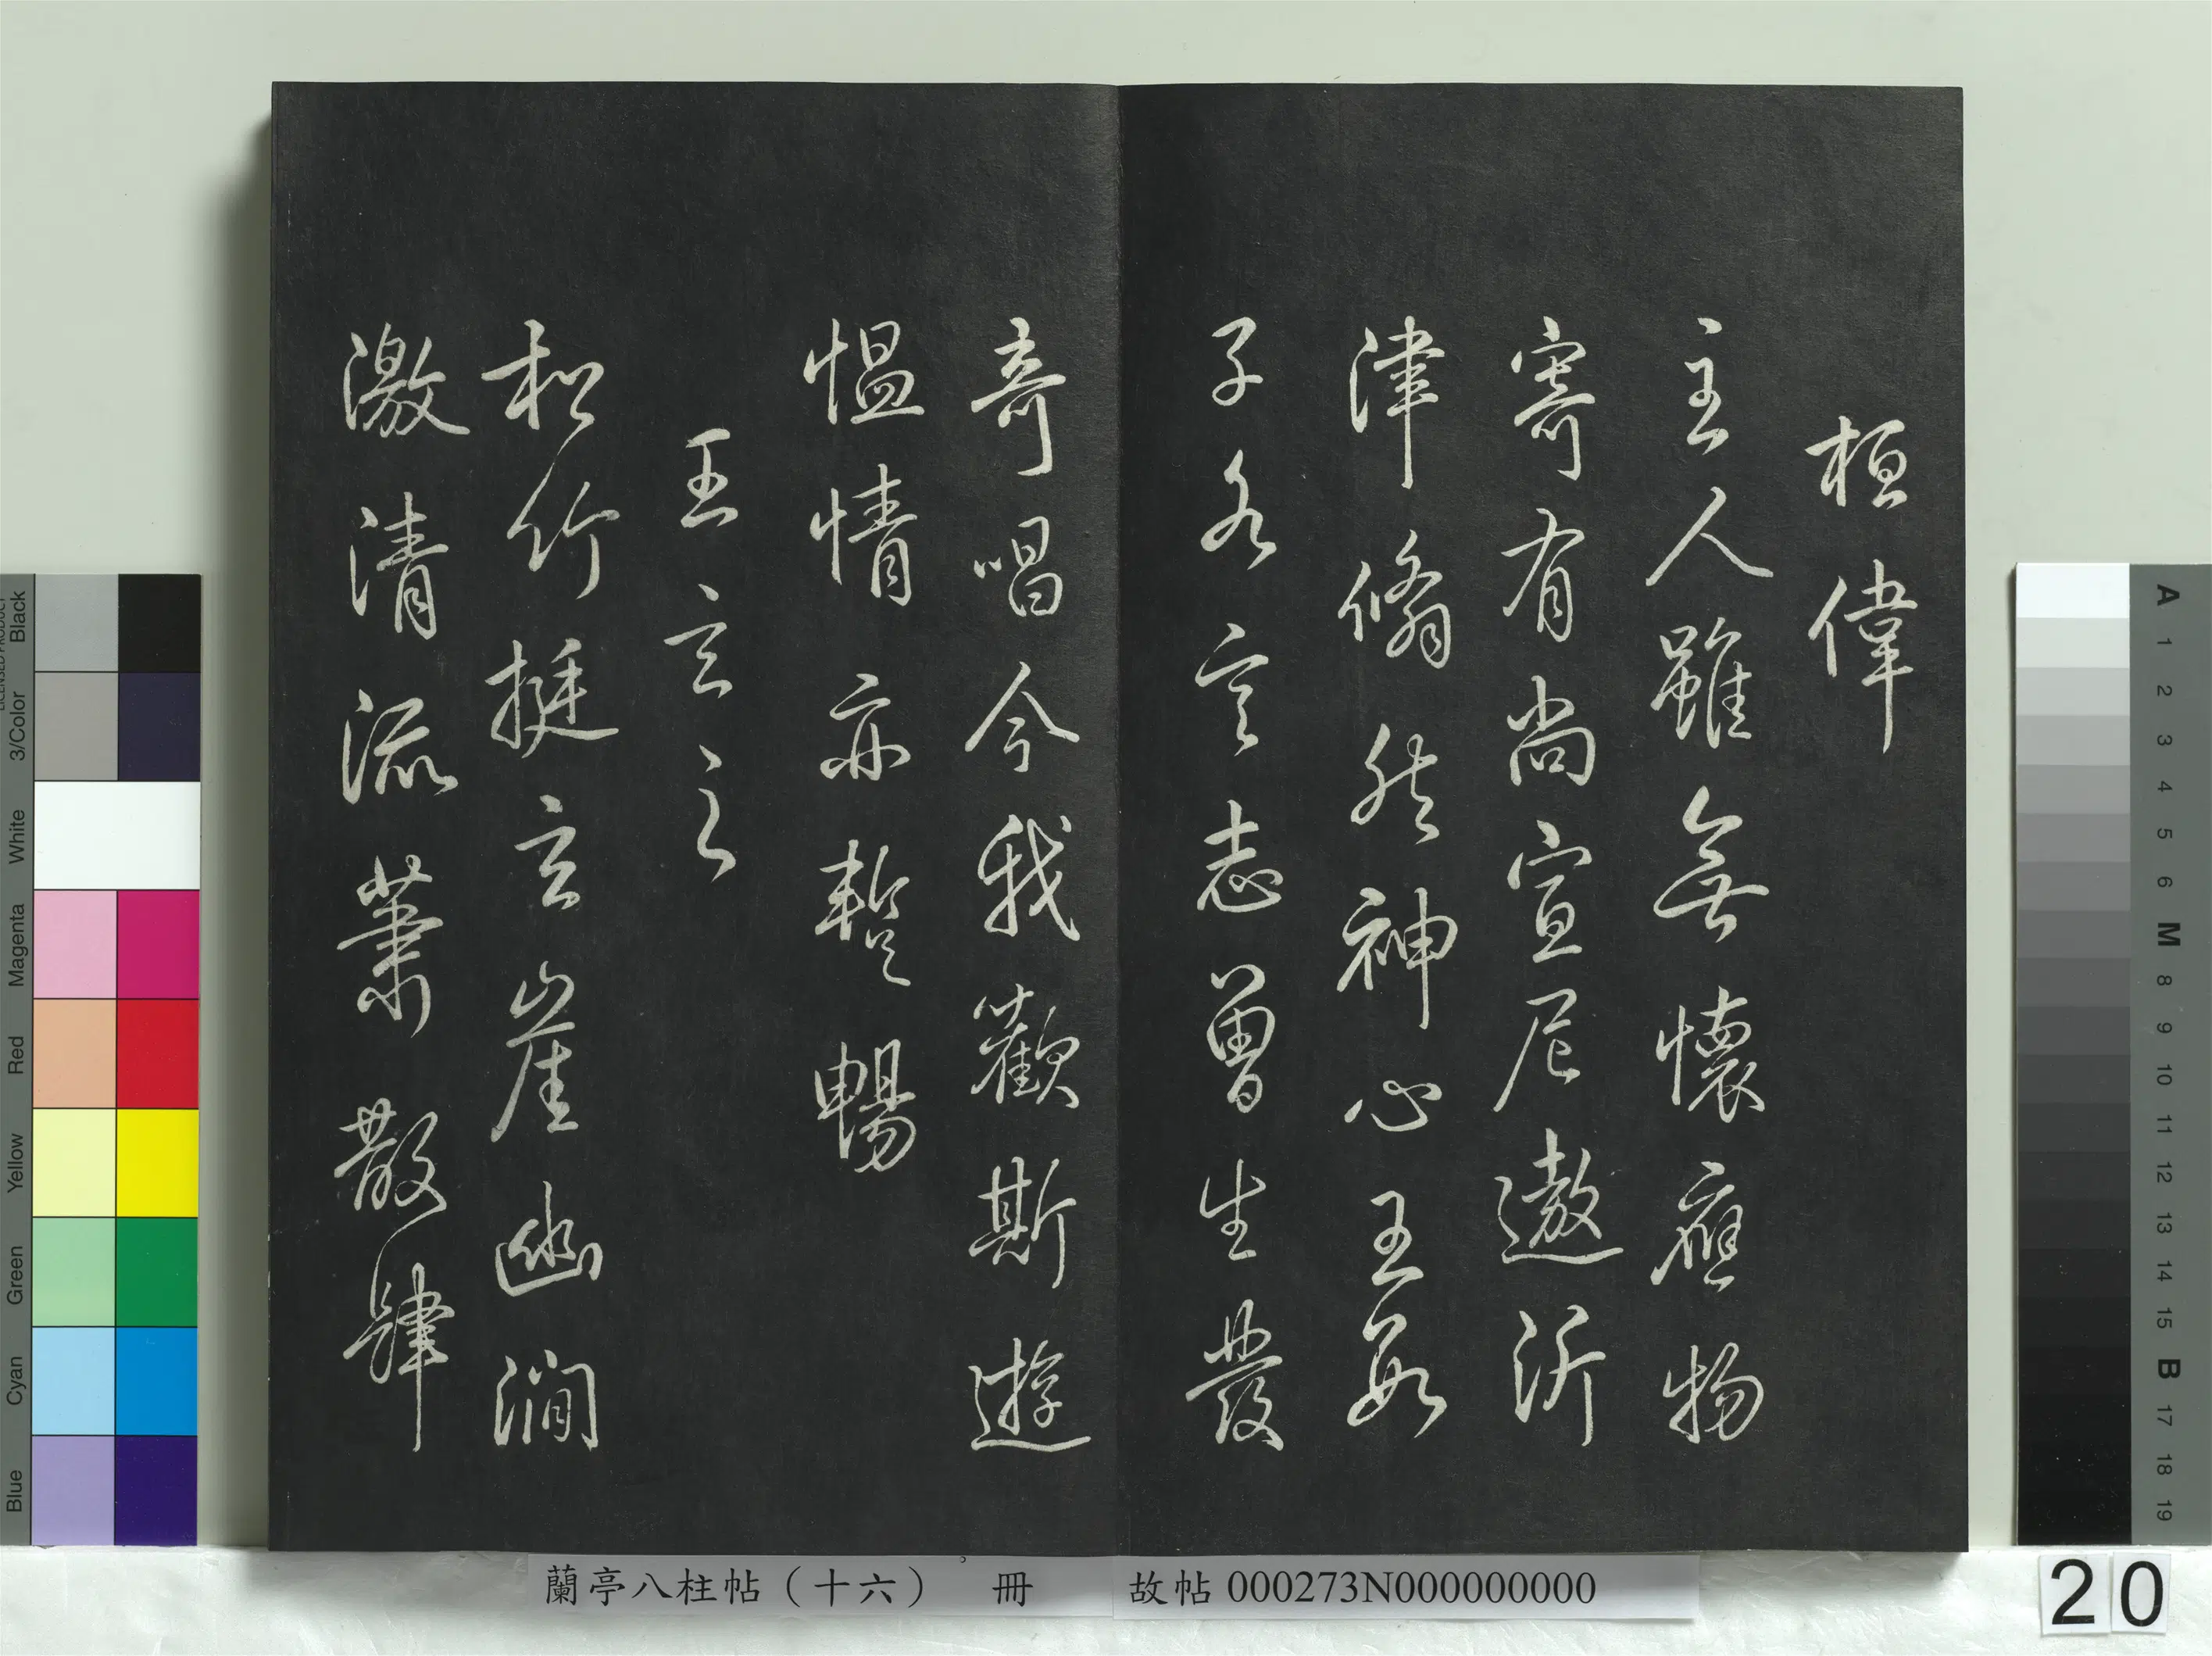 桓偉
主人雖無懷應物
寄有尚宣尼遨沂
津翛然神心王數
子各言志曾生發
奇唱今我歡斯遊
慍情亦蹔暢
王玄之
松竹挺玄崖幽澗
激清流蕭散肆
蘭亭八柱帖（十六） 冊 故帖 000273N000000000
20
Blue Cyan Green Yellow Red Magenta White 3/Color Black
A 1 2 3 4 5 6 M 8 9 10 11 12 13 14 15 B 17 18 19